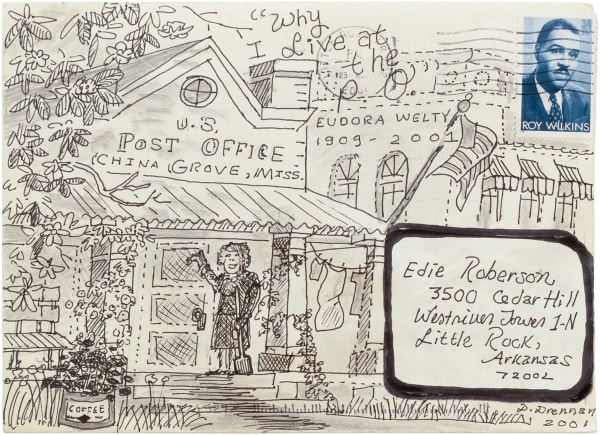 "Why
I Live at
the
P.O."
U.S.
POST OFFICE
CHINA GROVE, MISS.
EUDORA WELTY
1909 - 2001
ROY WILKINS
Edie Roberson
3500 Cedar Hill
Westriver Tower 1-N
Little Rock,
Arkansas
72002
COFFEE
D. Drennan
2001